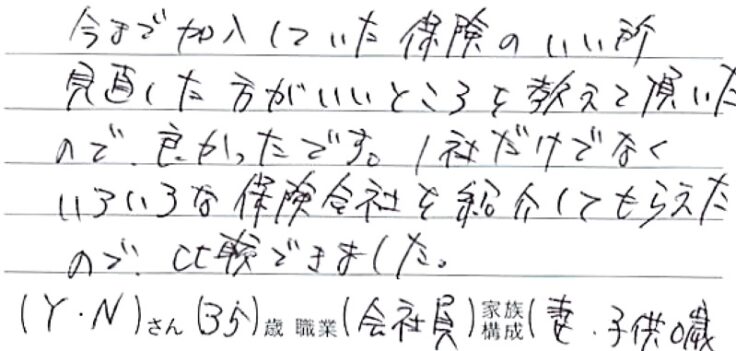 今まで加入していた保険のいい所
見直した方がいいところを教えて頂いた
ので、良かったです。1社だけでなく
いろいろな保険会社を紹介してもらえた
ので、比較できました。
(Y・N)さん(35)歳 職業(会社員)家族構成(妻・子供0歳